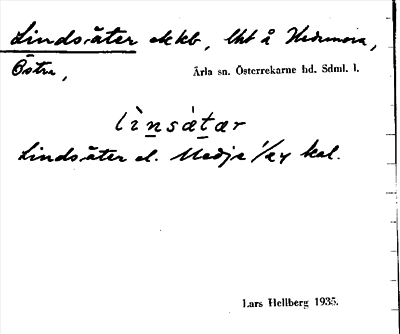 Lindsäter ekkb, lht å Hedemora,
Östra,
Ärla sn. Österrekarne hd. Sdml. l.
lìnsàtar
Lindsäter el. Medje 1/24 kal.
Lars Hellberg 1935.